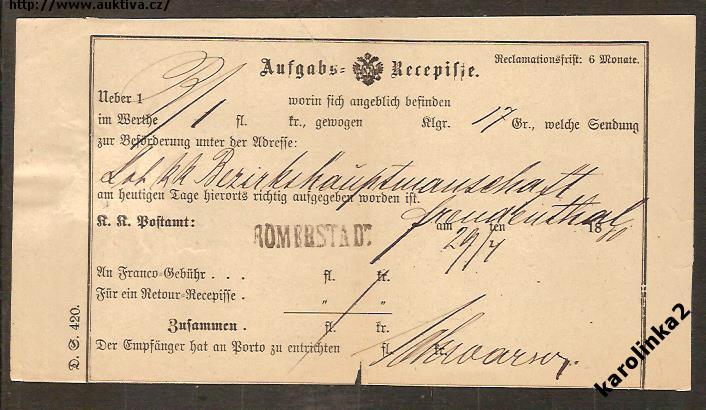 http://www.auktiva.cz/
Aufgabs= Recepisse.
Reclamationsfrist: 6 Monate.
Ueber 1
worin sich angeblich befinden
im Werthe 1 fl. kr., gewogen Klgr. 17 Gr., welche Sendung
zur Beförderung unter der Adresse:
Löbl kk Bezirkshauptmanschaft
am heutigen Tage hierorts richtig aufgegeben worden ist.
freudenthal
K. K. Postamt: RÖMERSTADT am 29/4 ten 18
An Franco-Gebühr . . . fl. kr.
Für ein Retour-Recepisse . " "
Zusammen . fl. kr.
Der Empfänger hat an Porto zu entrichten fl. kr.
D. S. 420.
karolinka2